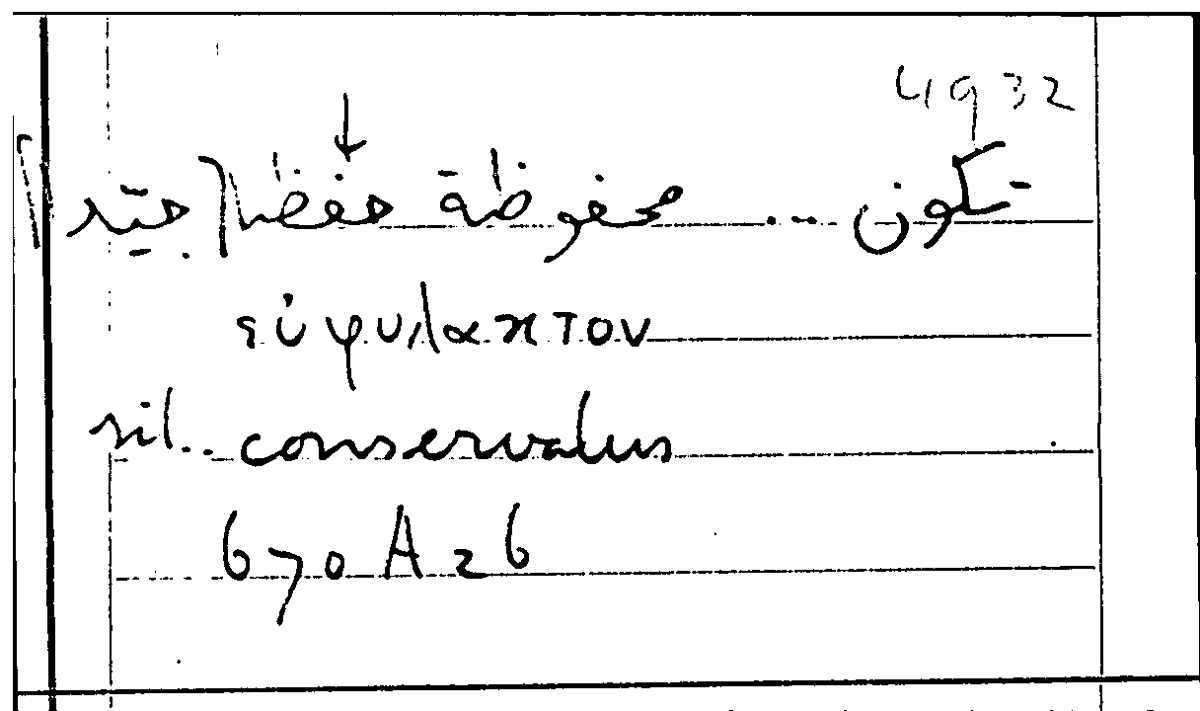 4932
تكون ... محفوظة حفظا جيّد
εὐφυλακτον
sit .. conservatus
670 A 26